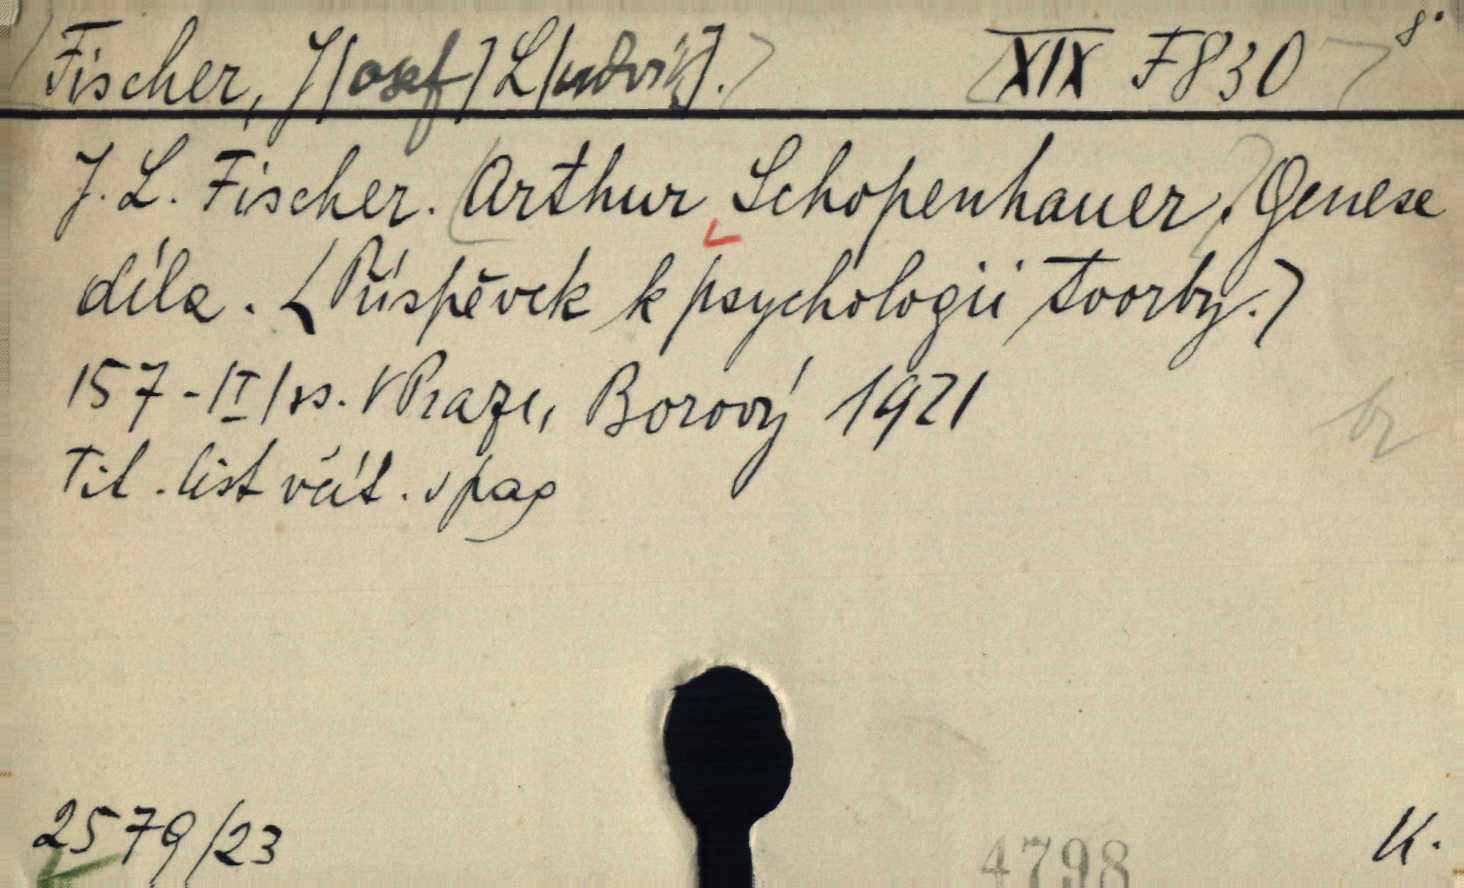 Fischer, J[osef] L[udvík]. XIX F 830 8°
J. L. Fischer. Arthur Schopenhauer. Genese
díla. (Příspěvek k psychologii tvorby.)
157-|II| s. V Praze, Borový 1921
Tit. list včít. v pag
2579/23
4798
K.